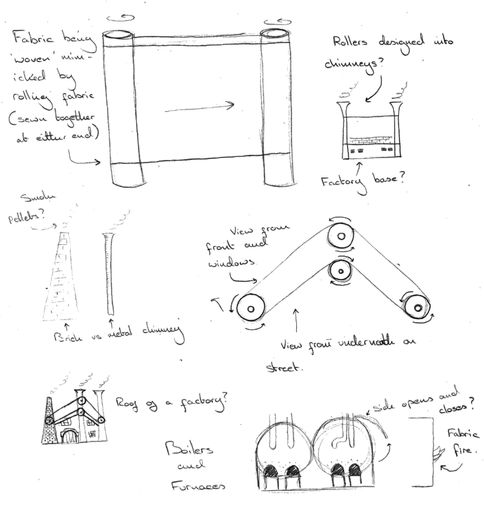 Fabric being
'woven' mim-
icked by
rolling fabric
(sewn together
at either end)
Rollers designed into
chimneys?
Factory base?
Smoke
pellets?
Brick vs metal chimney
View from
front and
windows.
View from underneath on
street.
Roof of a factory?
Boilers
and
Furnaces
Side opens and
closes?
Fabric
fire.